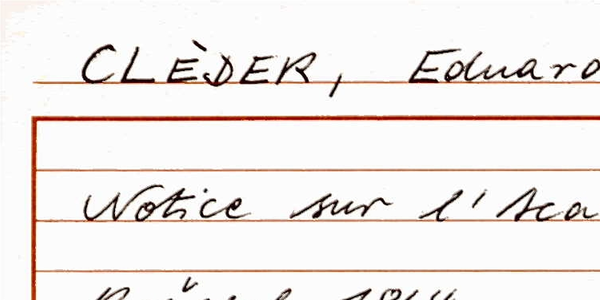 CLÈDER, Eduard
Notice sur l'Aca